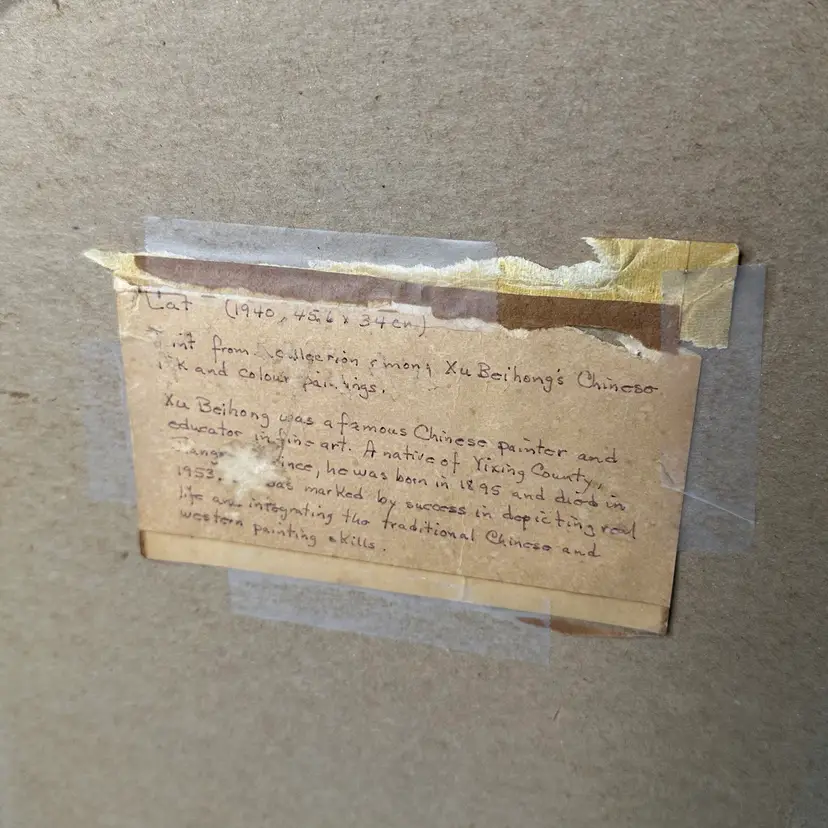 Cat - (1940, 45.6 x 34 cm)
from among Xu Beihong's Chinese
and colour paintings.
Xu Beihong was a famous Chinese painter and
educator in fine art. A native of Yixing County,
he was born in 1895 and died in
1953. was marked by success in depicting real
life and integrating the traditional Chinese and
western painting skills.